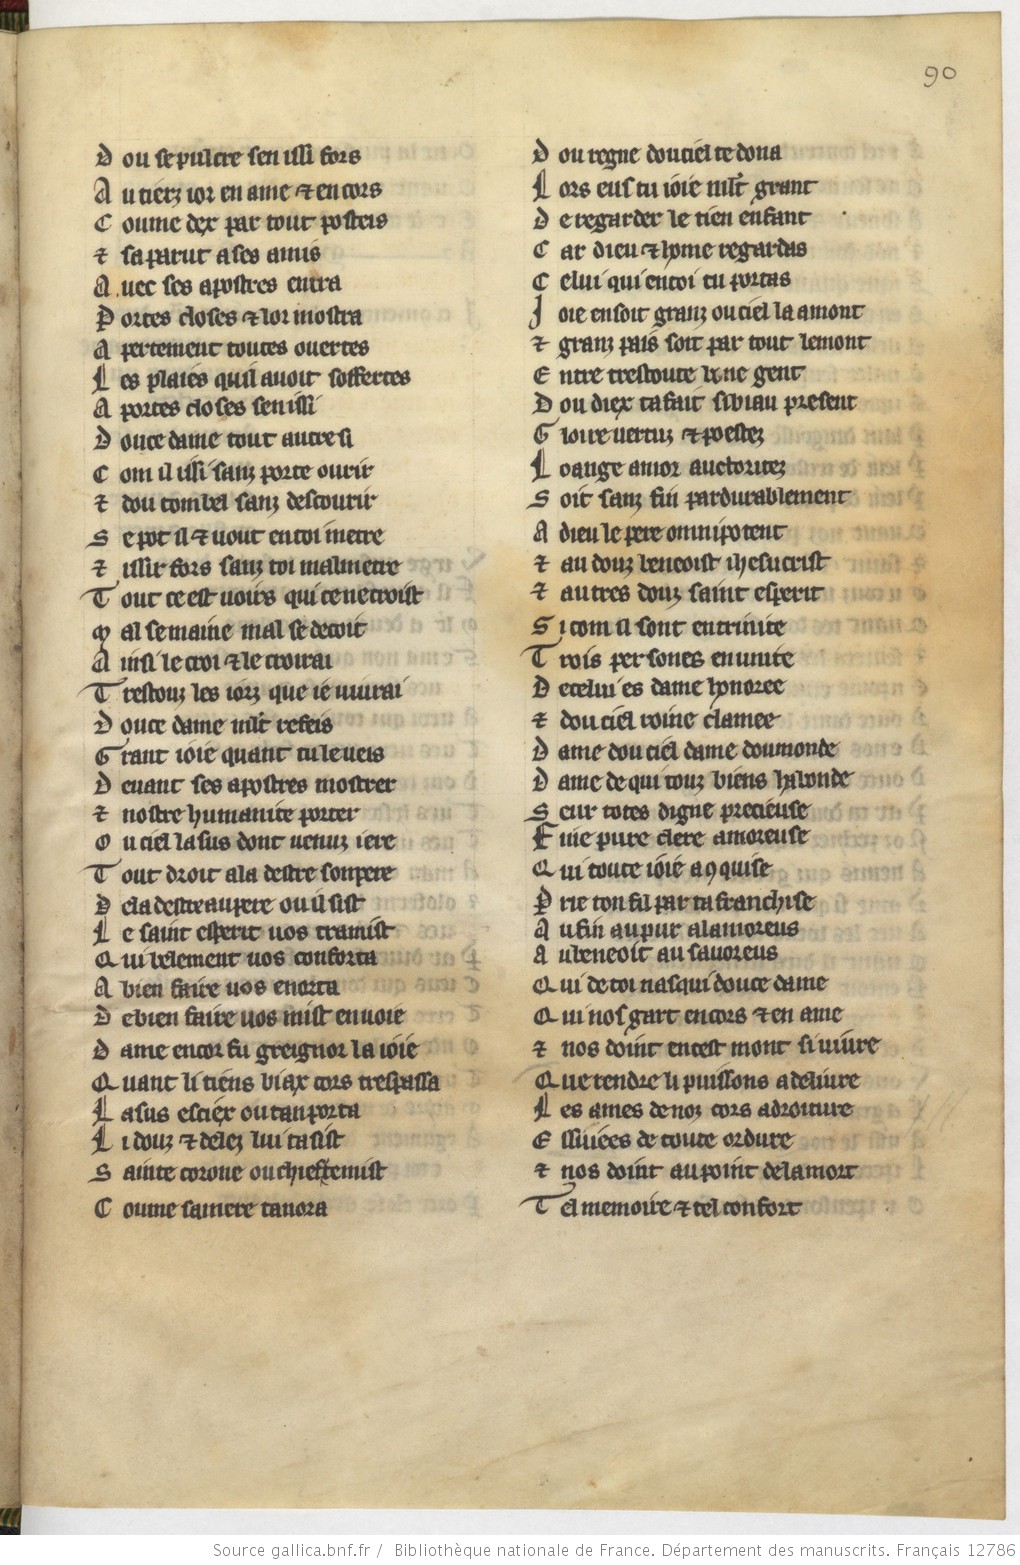 90
D ou sepulcre sen issi fors
A u tierz ior en ame ⁊ en cors
C oume dex par tout posteis
⁊ sa parut a ses amis
A uec ses apostres entra
P ortes closes ⁊ lor mostra
A pertement toutes ouertes
L es plaies quil auoit soffertes
A portes closes sen issi
D ouce dame tout autresi
C om il issi sanz porte ourir
⁊ dou tombel sanz descourir
S e pot il ⁊ uout en toi metre
⁊ issir fors sanz toi malmetre
T out ce est uoirs qui ce ne croist
M al se maine mal se decoit
A insi le croi ⁊ le croirai
T restouz les iorz que ie uiurai
D ouce dame mlt refeis
G rant ioie quant tu le ueis
D euant ses apostres mostrer
⁊ nostre humanite porter
O u ciel lasus dont uenuz iere
T out droit a la destre son pere
D e la destre au pere ou il sist
L e saint esperit uos tramist
Q ui belement uos conforta
A bien faire uos enorta
D e bien faire uos mist en uoie
D ame encor fu greignor la ioie
Q uant li tiens biax cors trespassa
L asus es ciex ou tan porta
L i douz ⁊ delez lui ta sist
S ainte corone ou chief te mist
C oume saincte ta nora
D ou regne dou ciel te dona
L ors eus tu ioie mlt grant
D e regarder le tien enfant
C ar dieu ⁊ home regardas
C elui qui en toi tu portas
J oie en soit granz ou ciel la amont
⁊ granz pais soit par tout le mont
E ntre trestoute hune gent
D ou diex ta fait si biau present
G loire uertuz ⁊ poestez
L oange amor auctoritez
S oit sanz fin pardurablement
A dieu le pere omnipotent
⁊ au douz beneoist ihesucrist
⁊ au tres douz saint esperit
S i com il sont en trinite
T rois persones en unite
D e celui es dame honoree
⁊ dou ciel roine clamee
D ame dou ciel dame dou monde
D ame de qui touz biens habonde
S eur totes digne precieuse
F uie pure clere amoreuse
Q ui toute ioie a ꝯquise
P rie ton fil par ta franchise
A u fin au pur a lamoreus
A u beneoit au sauoreus
Q ui de toi nasqui douce dame
Q ui nos gart en cors ⁊ en ame
⁊ nos doint en cest mont si uiure
Q ue rendre li puissons a deliure
L es ames de noz cors a droiture
E ssiuees de toute ordure
⁊ nos doint au point de la mort
T el memoire ⁊ tel confort
Source gallica.bnf.fr / Bibliothèque nationale de France. Département des manuscrits. Français 12786